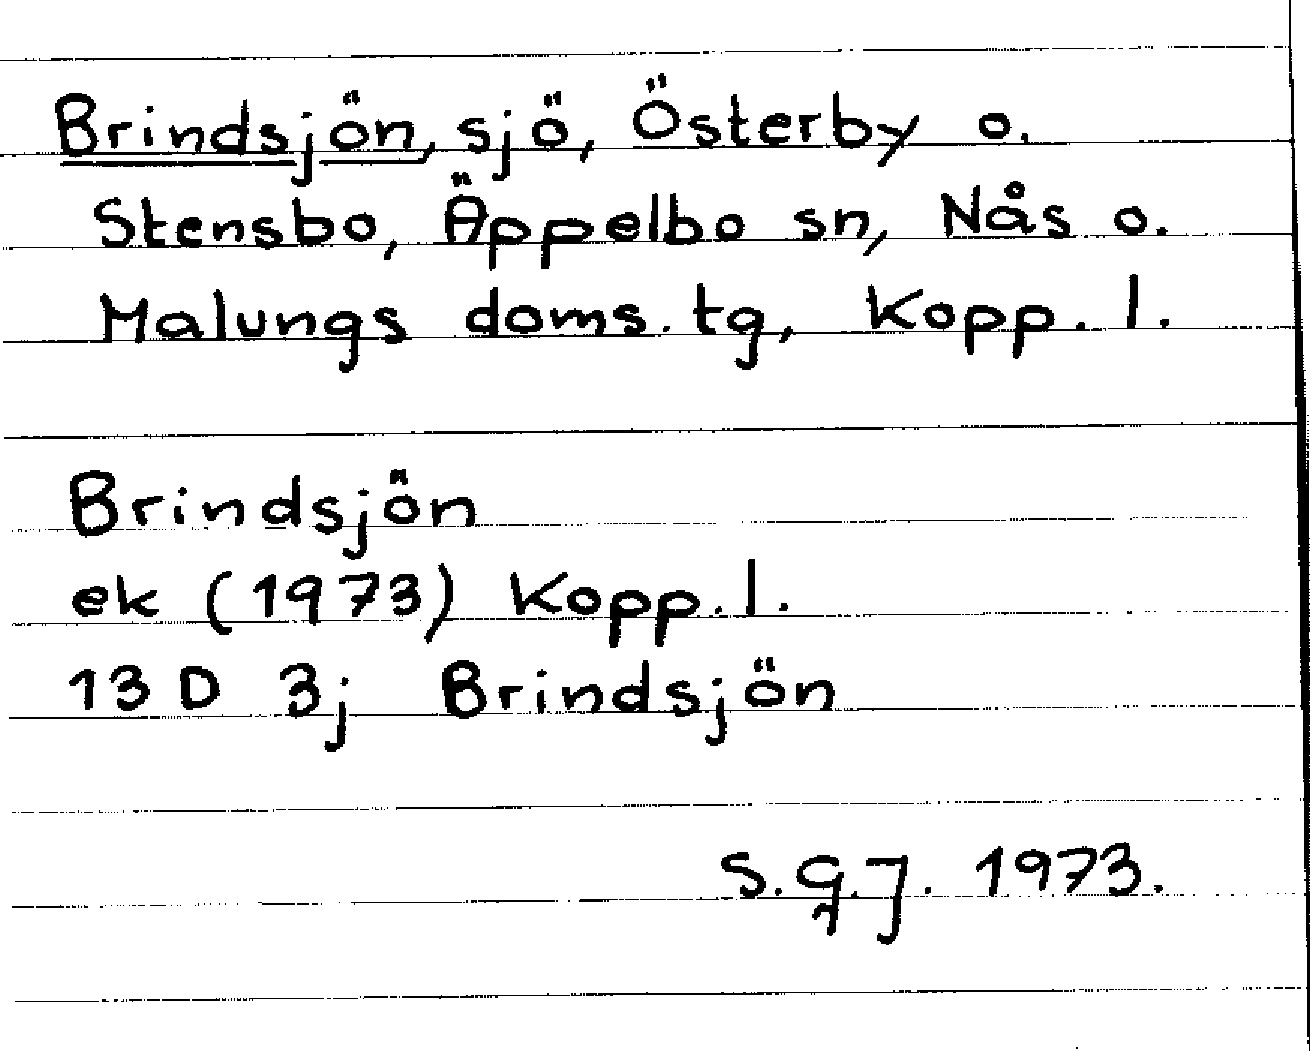 Brindsjön, sjö, Österby o.
Stensbo, Äppelbo sn, Nås o.
Malungs doms. tg, Kopp. l.
Brindsjön
ek (1973) Kopp. l.
13 D 3j Brindsjön
S.G.J. 1973.